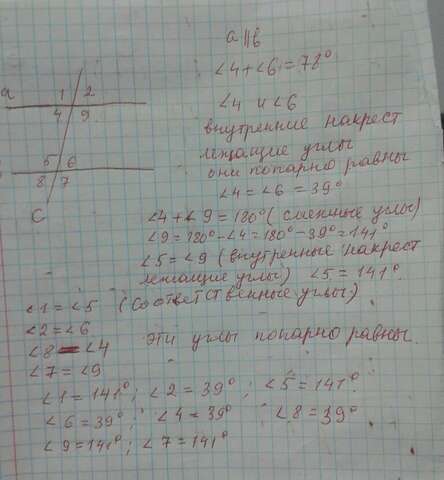 a || b
∠4+∠6=78°
a 1 2
4 9
5 6
8 7
c
∠4 и ∠6
внутренние накрест
лежащие углы
они попарно равны
∠4=∠6=39°
∠4+∠9=180° (смежные углы)
∠9=180°-∠4=180°-39°=141°
∠5=∠9 (внутренные накрест
лежащие углы) ∠5=141°
∠1=∠5 (соответственные углы)
∠2=∠6
∠8=∠4 эти углы попарно равны.
∠7=∠9
∠1=141°; ∠2=39°; ∠5=141°
∠6=39°; ∠4=39° ∠8=39°
∠9=141°; ∠7=141°